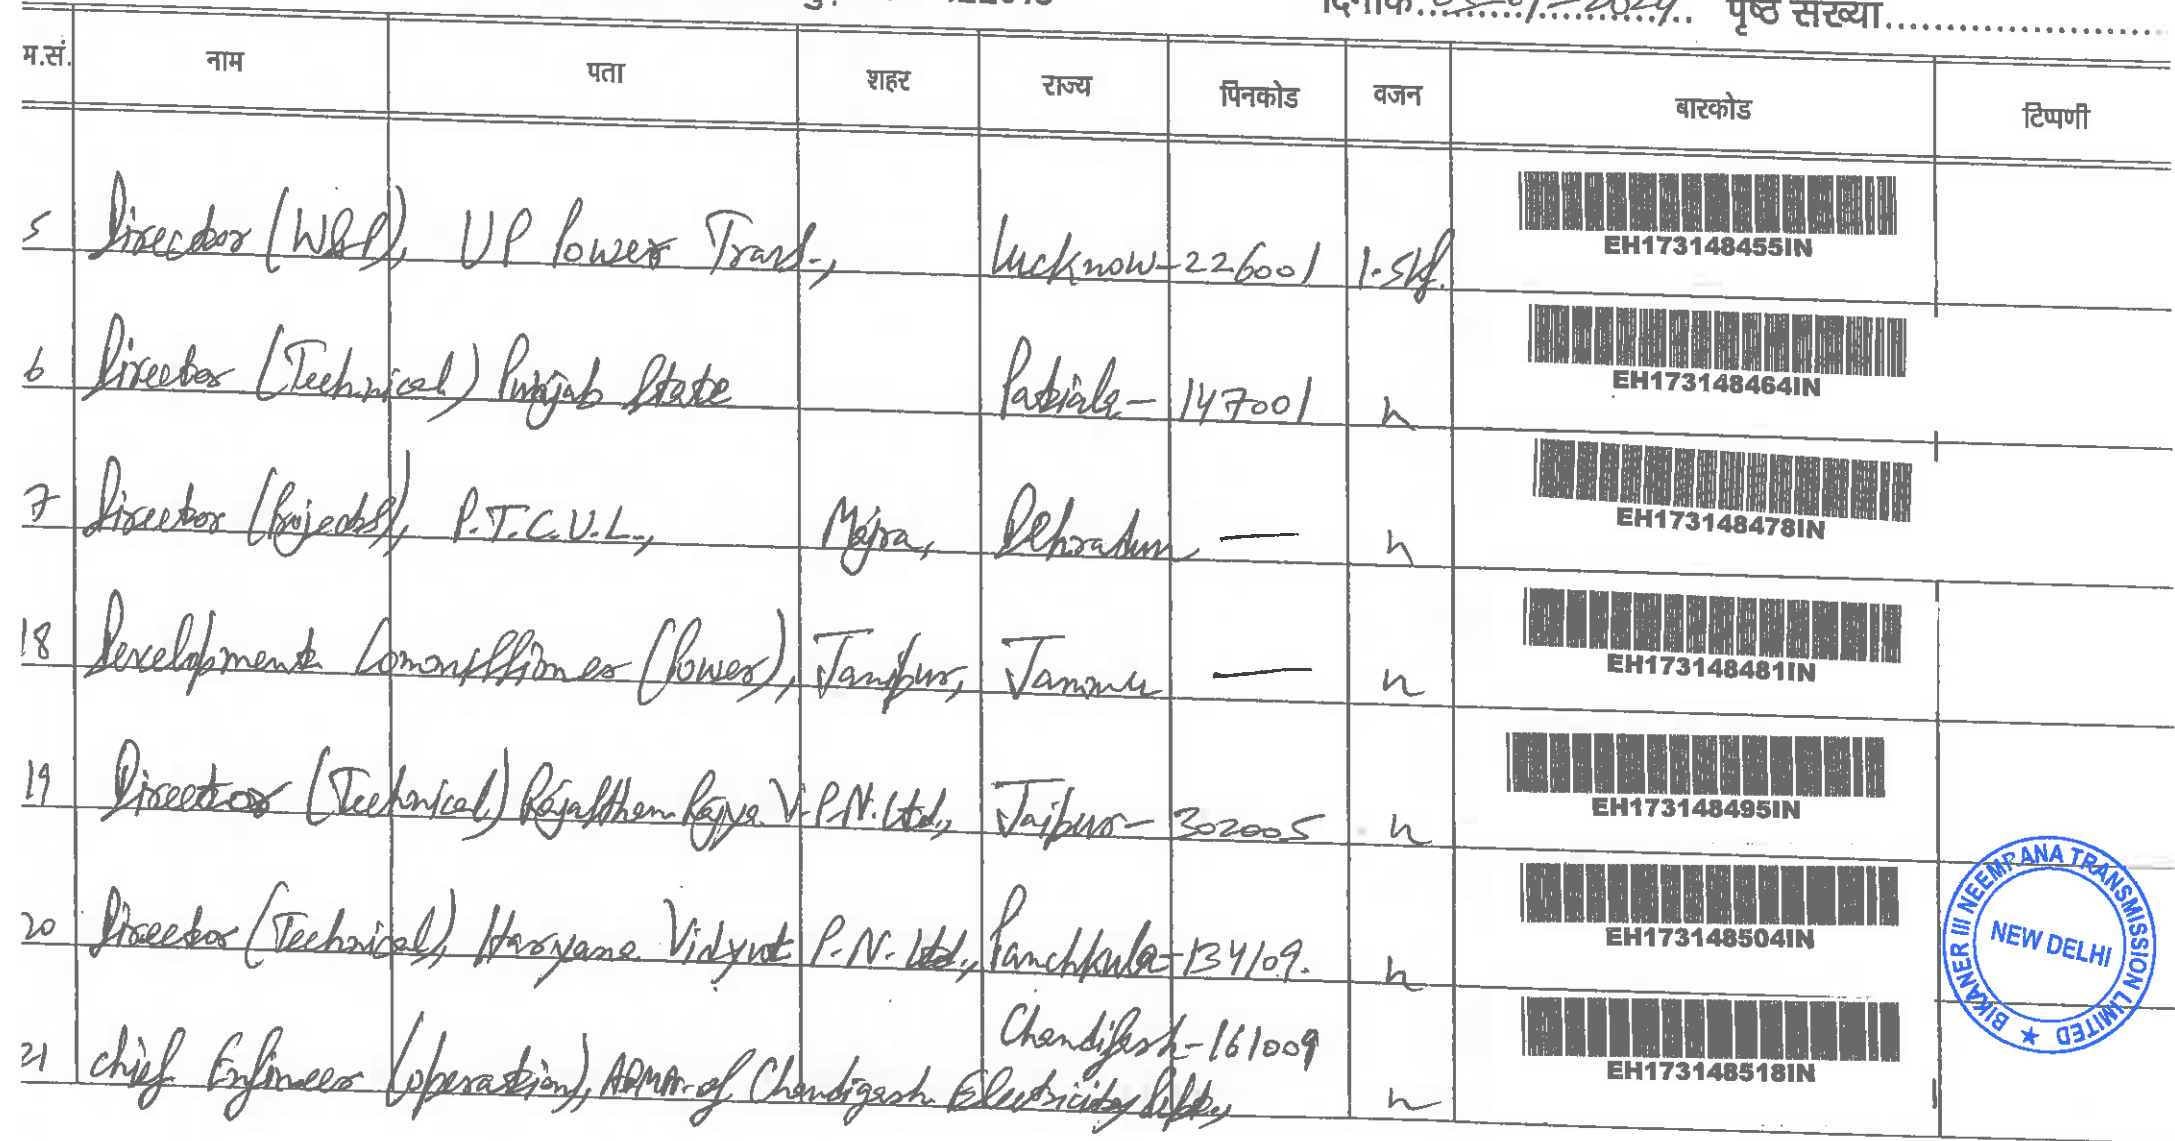 दिनांक 2024 पृष्ठ संख्या
म.सं. नाम पता शहर राज्य पिनकोड वजन बारकोड टिप्पणी
5 Director (W&P), UP Power Trans., Lucknow-226001 1.5kg. EH173148455IN
6 Director (Technical) Punjab State Patiala-147001 " EH173148464IN
7 Director (Projects), P.T.C.U.L., Majra, Dehradun — " EH173148478IN
18 Development Commissioner (Power), Janipur, Jammu — " EH173148481IN
19 Director (Technical) Rajasthan Rajya V.P.N. Ltd., Jaipur-302005 " EH173148495IN
20 Director (Technical), Haryana Vidyut P.N. Ltd., Panchkula-134109. " EH173148504IN
Chandigarh-161009
21 Chief Engineer (operation), of Chandigarh Electricity Deptt., " EH173148518IN
BIKANER III NEEMRANA TRANSMISSION LIMITED ★
NEW DELHI